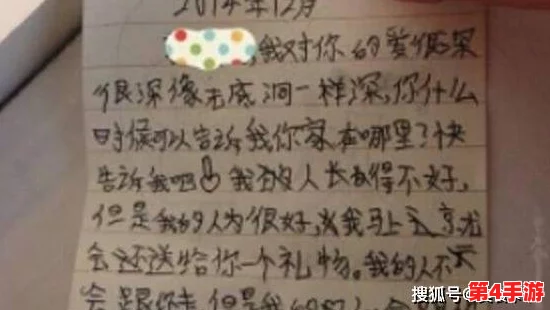 2014年12月
,我对你的爱很深
很深像无底洞一样深,你什么
时候可以告诉我你家在哪里了快
告诉我吧 我 人长 得不好,
但是我的人为很好, 我马上
会还送给你一个礼物。我的人不
会跟你走 但是我
搜狐号@
第4手游